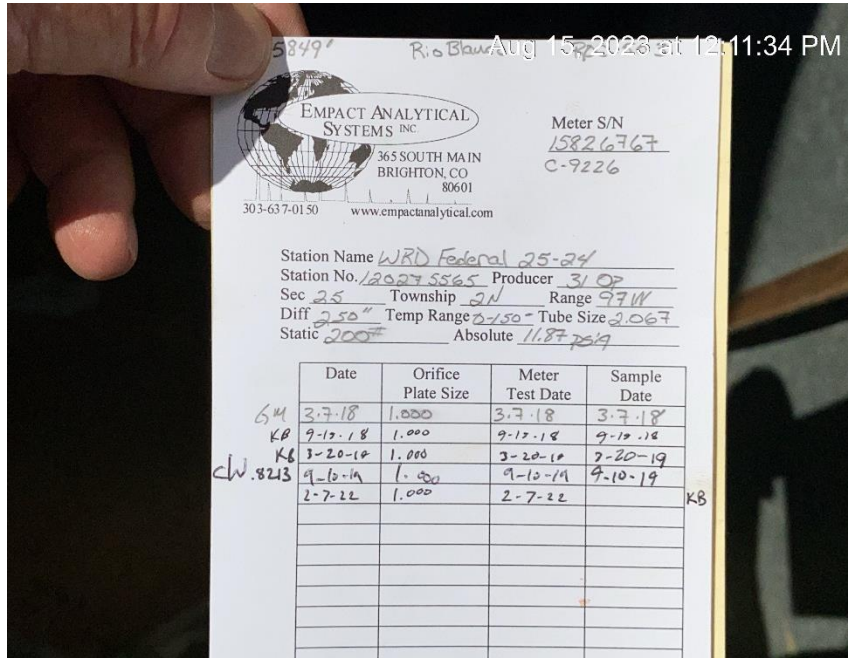 5849' Rio Blanco
Aug 15, 2023 at 12:11:34 PM
EMPACT ANALYTICAL
SYSTEMS INC.
365 SOUTH MAIN
BRIGHTON, CO
80601
303-637-0150 www.empactanalytical.com
Meter S/N
15826767
C-9226
Station Name WRD Federal 25-24
Station No. 120275565 Producer 31 OP
Sec 25 Township 2N Range 97W
Diff 250" Temp Range 0-150° Tube Size 2.067
Static 200# Absolute 11.87 psia
Date Orifice Plate Size Meter Test Date Sample Date
GM 3.7.18 1.000 3.7.18 3.7.18
KB 9-12-18 1.000 9-12-18 9-12-18
KB 3-20-19 1.000 3-20-19 3-20-19
CW .8213 9-10-19 1.000 9-10-19 9-10-19
2-7-22 1.000 2-7-22 KB